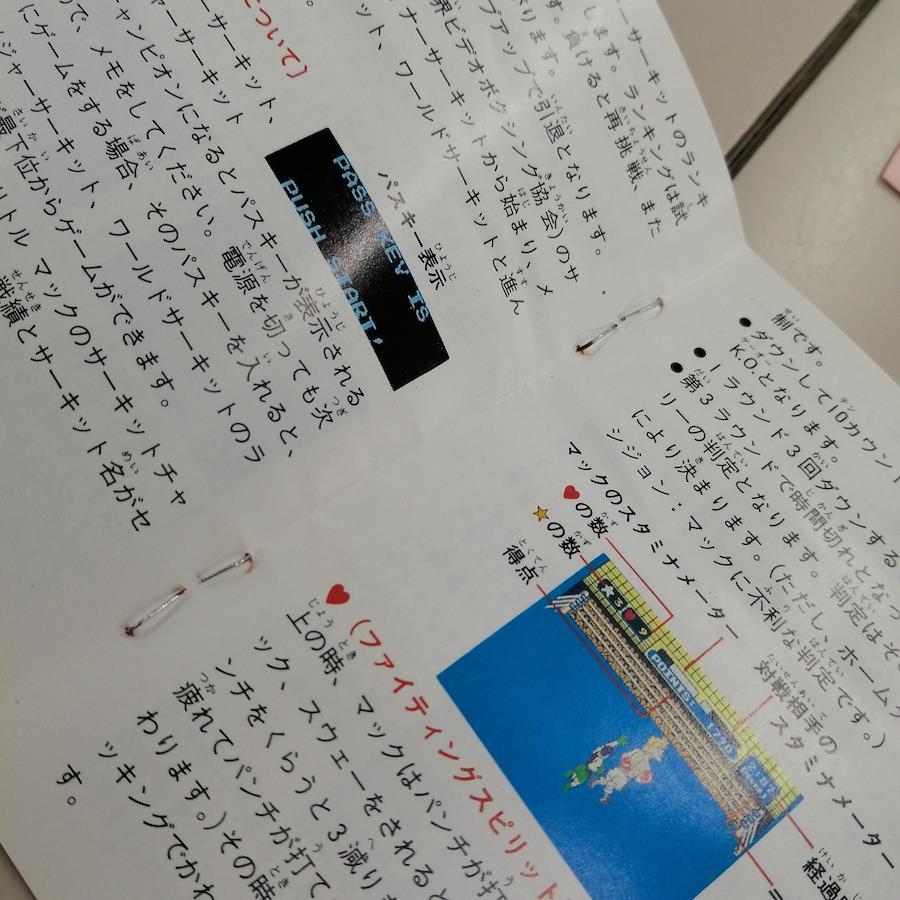 ーサーキットのランキ
します。ランキングは試
す。負けると再挑戦、また
がります。
プアップで引退となります。
界ビデオボクシング協会)のサ
ナーサーキットから始まり、メ
ット、ワールドサーキットと進ん
パスキー表示
PASS KEY IS
PUSH START,
ついて〕
ーサーキット、
ーサーキット
ャンピオンになるとパスキーが表示される
で、メモをしてください。電源を切っても次
にゲームをする場合、そのパスキーを入れると、
ジャーサーキット、ワールドサーキットのラ
最下位からゲームができます。
リトル マックのサーキットチャ
戦績とサーキット名がセ
制です。
●ダウンして10カウント
K.O.となります。
●1ラウンド3回ダウンする
●第3ラウンドで時間切れとなっ
リーの判定となります。(ただし、判定はそ
により決まります。
シジョン:マックに不利な判定です。)
マックのスタミナメーター
♥の数
★の数
得点
対戦相手の
スタミナメーター
経過
POINTS
♥(ファイティングスピリット
上の時、マックはパンチが打
ック、スウェーをされると
ンチをくらうと3減り
疲れてパンチが打て
わります。)その時
ッキングでかわ
す。